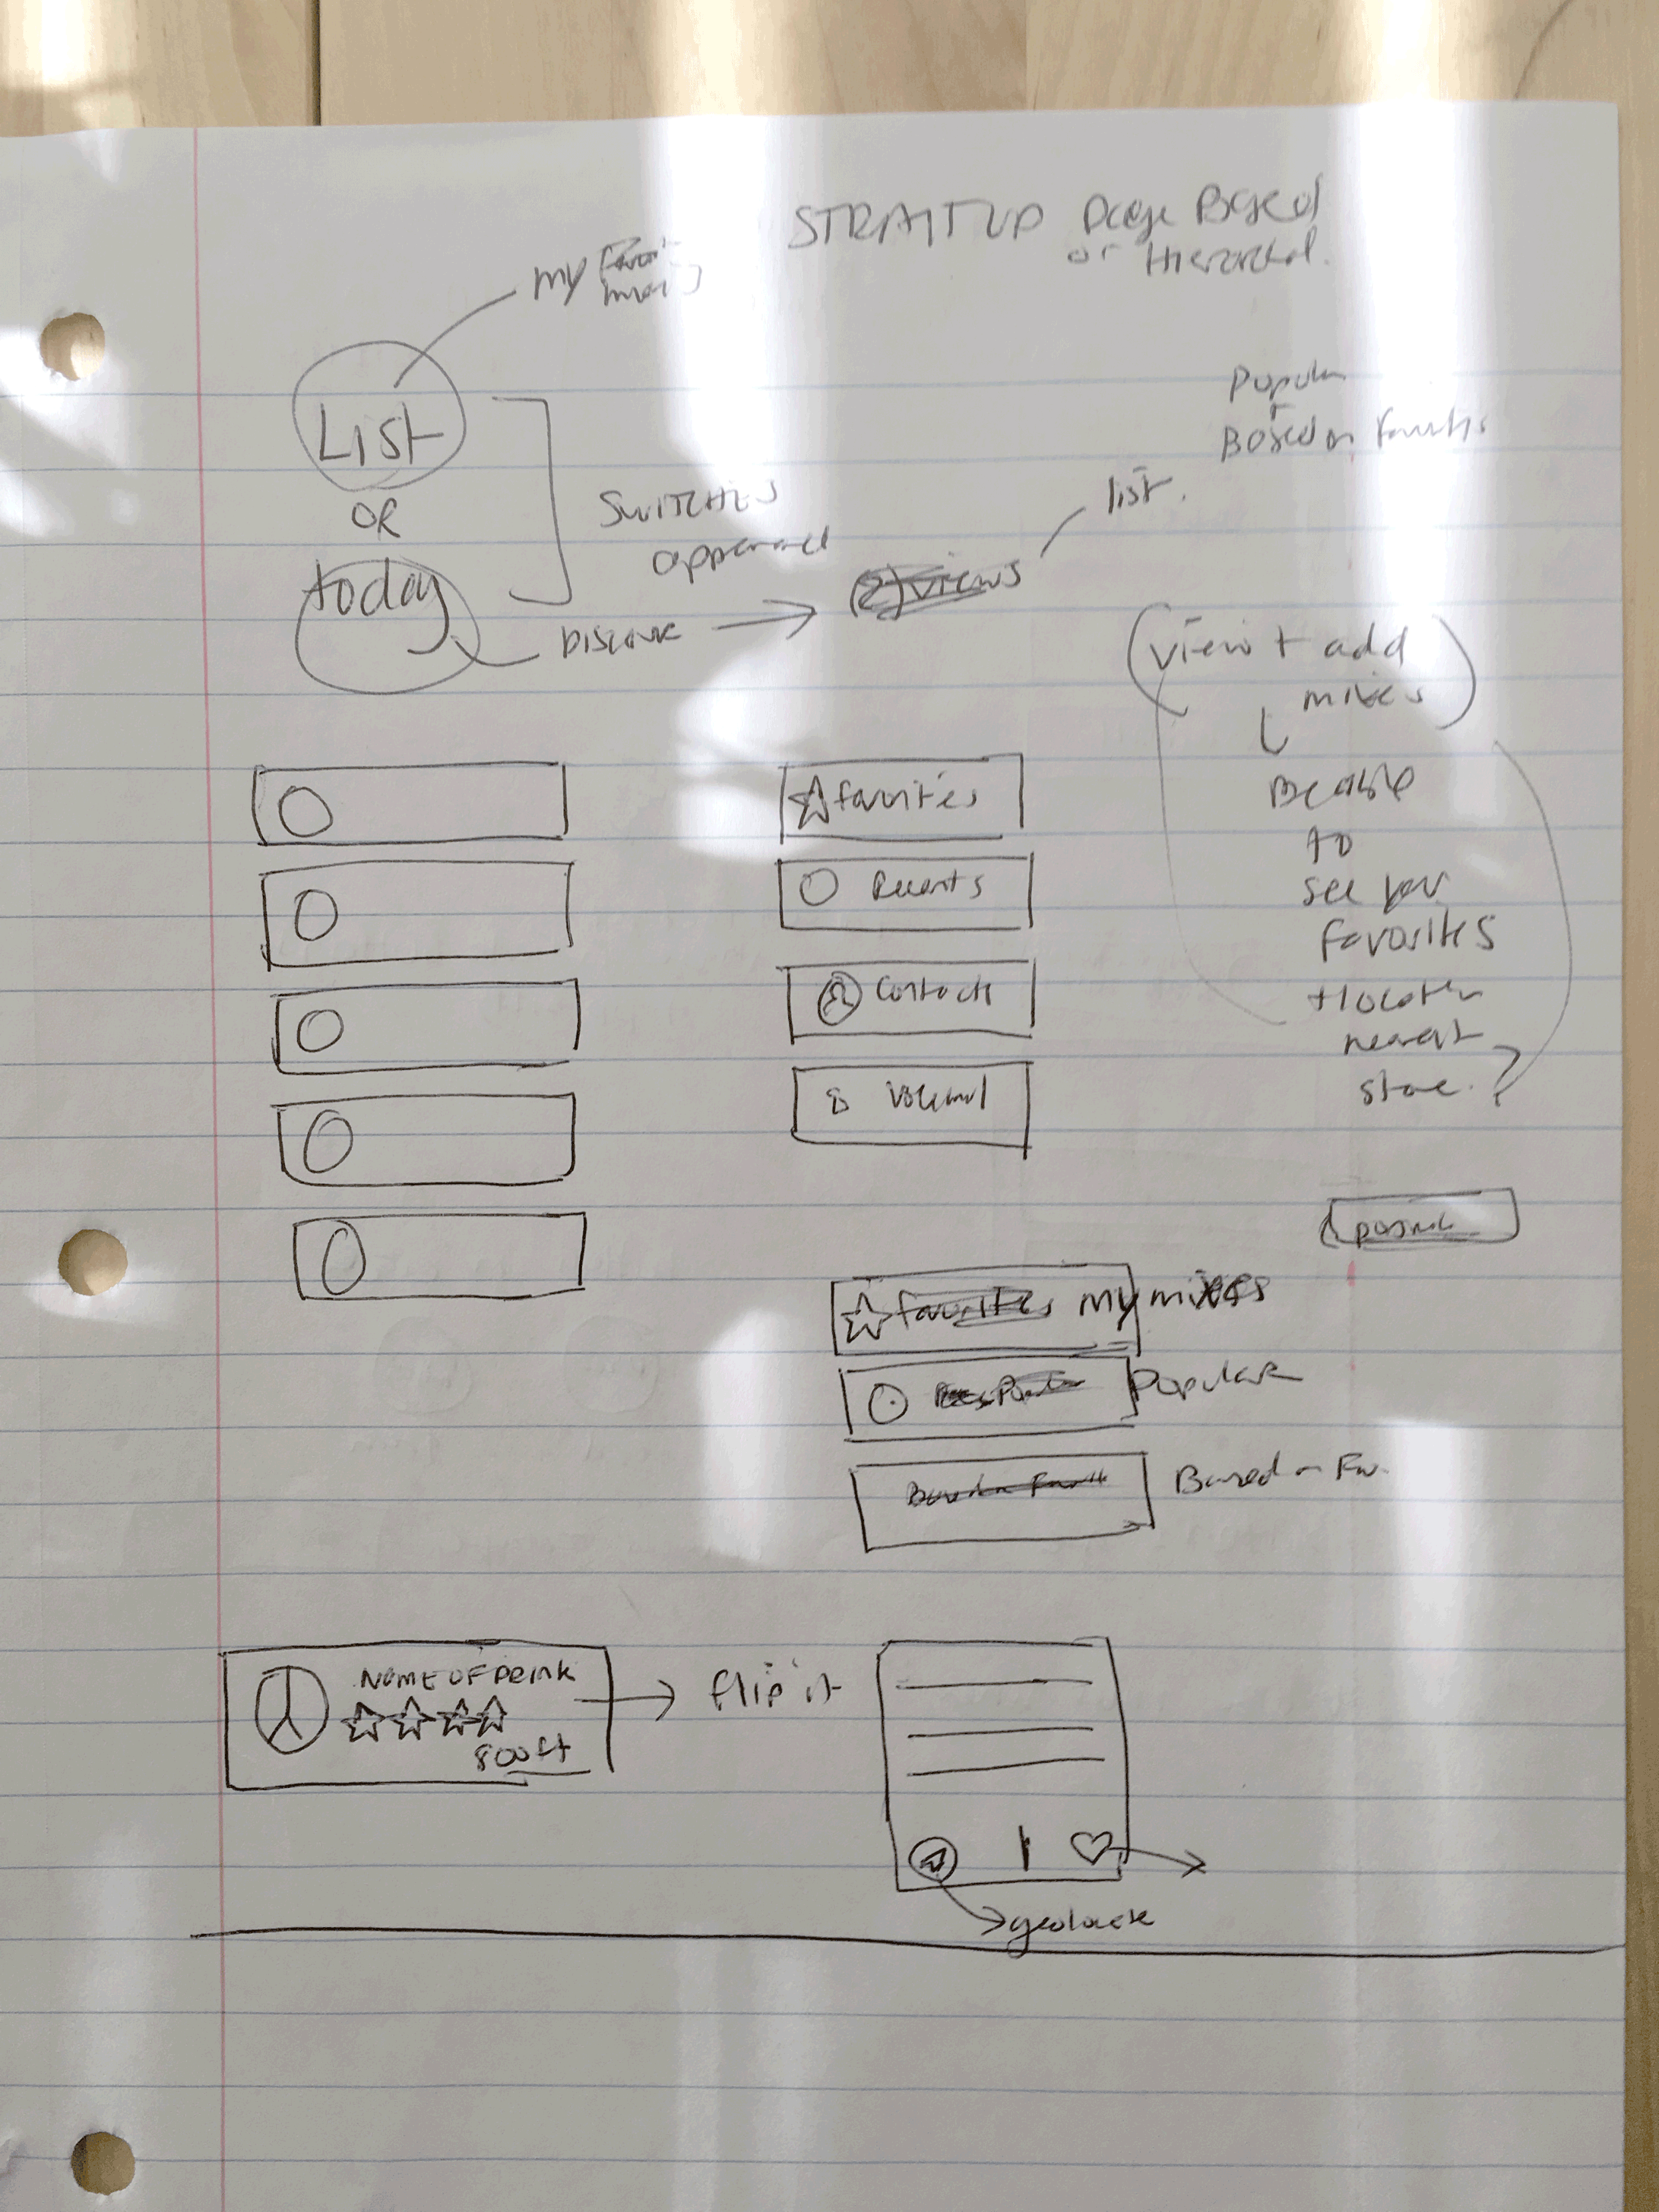 STRAIT UP Page Based
or Hierarchal.
my
List
OR
today
SWITCHES
Discover
(2) views
list.
Popular
+
Based on favorites
(view + add
mixes)
Be able
to
see your
favorites
+ location
nearest
store. ?
favorites
Recents
Contacts
Voicemail
favorites my mixes
Popular
Based on Favorite
Based on Fav.
NAME OF DRINK
800 ft
flip it
geolocate